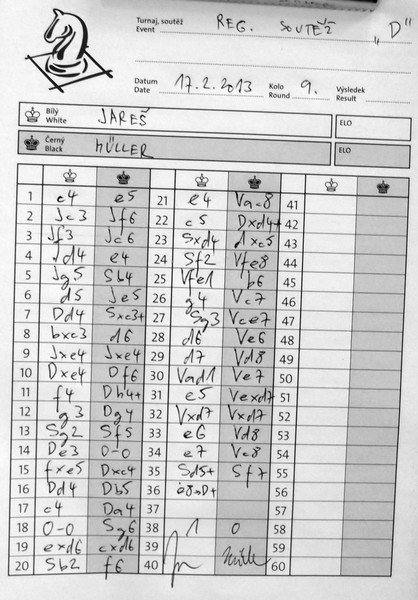 Turnaj, soutěž
Event
REG. SOUTĚŽ „D"
Datum
Date
17.2.2013
Kolo
Round
9.
Výsledek
Result
Bílý
White
JAREŠ
ELO
Černý
Black
MÜLLER
ELO
1 c4 e5 21 e4 Vac8 41
2 Jc3 Jf6 22 c5 Dxd4+ 42
3 Jf3 Jc6 23 Sxd4 dxc5 43
4 Jd4 e4 24 Sf2 Vfe8 44
5 Jg5 Sb4 25 Vfe1 b6 45
6 d5 Je5 26 g4 Vc7 46
7 Dd4 Sxc3+ 27 Sg3 Vce7 47
8 bxc3 d6 28 d6 Ve6 48
9 Jxe4 Jxe4 29 d7 Vd8 49
10 Dxe4 Df6 30 Vad1 Ve7 50
11 f4 Dh4+ 31 e5 Vexd7 51
12 g3 Dg4 32 Vxd7 Vxd7 52
13 Sg2 Sf5 33 e6 Vd8 53
14 De3 0-0 34 e7 Vc8 54
15 fxe5 Dxc4 35 Sd5+ Sf7 55
16 Dd4 Db5 36 e8=D+ 56
17 c4 Da4 37 57
18 0-0 Sg6 38 1 0 58
19 exd6 cxd6 39 59
20 Sb2 f6 40 60